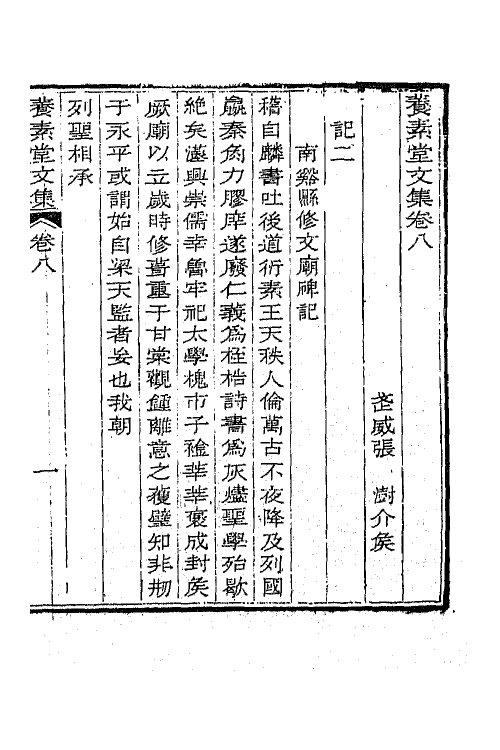 養素堂文集卷八
武威張 澍介侯
記二
南谿縣修文廟碑記
稽自麟書吐後道衍素王天秩人倫萬古不夜降及列國
嬴秦角力膠庠遂廢仁義為桎梏詩書為灰燼聖學殆歇
絶矣漢興崇儒幸魯牢祀太學槐市子襘莘莘褒成封矦
厥廟以立歲時修葺重于甘棠觀鍾離意之獲璧知非剏
于永平或謂始自梁天監者妄也我朝
列聖相承
養素堂文集 卷八 一